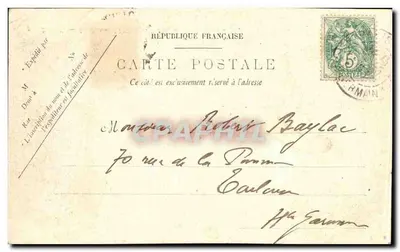 RÉPUBLIQUE FRANÇAISE
CARTE POSTALE
Ce côté est exclusivement réservé à l'adresse
Expédié par M
M
Demt à
Rue
L'inscription du nom et de l'adresse de
l'expéditeur est facultative
5
Monsieur Robert Baylac
70 rue de la
Toulouse
Hte Garonne